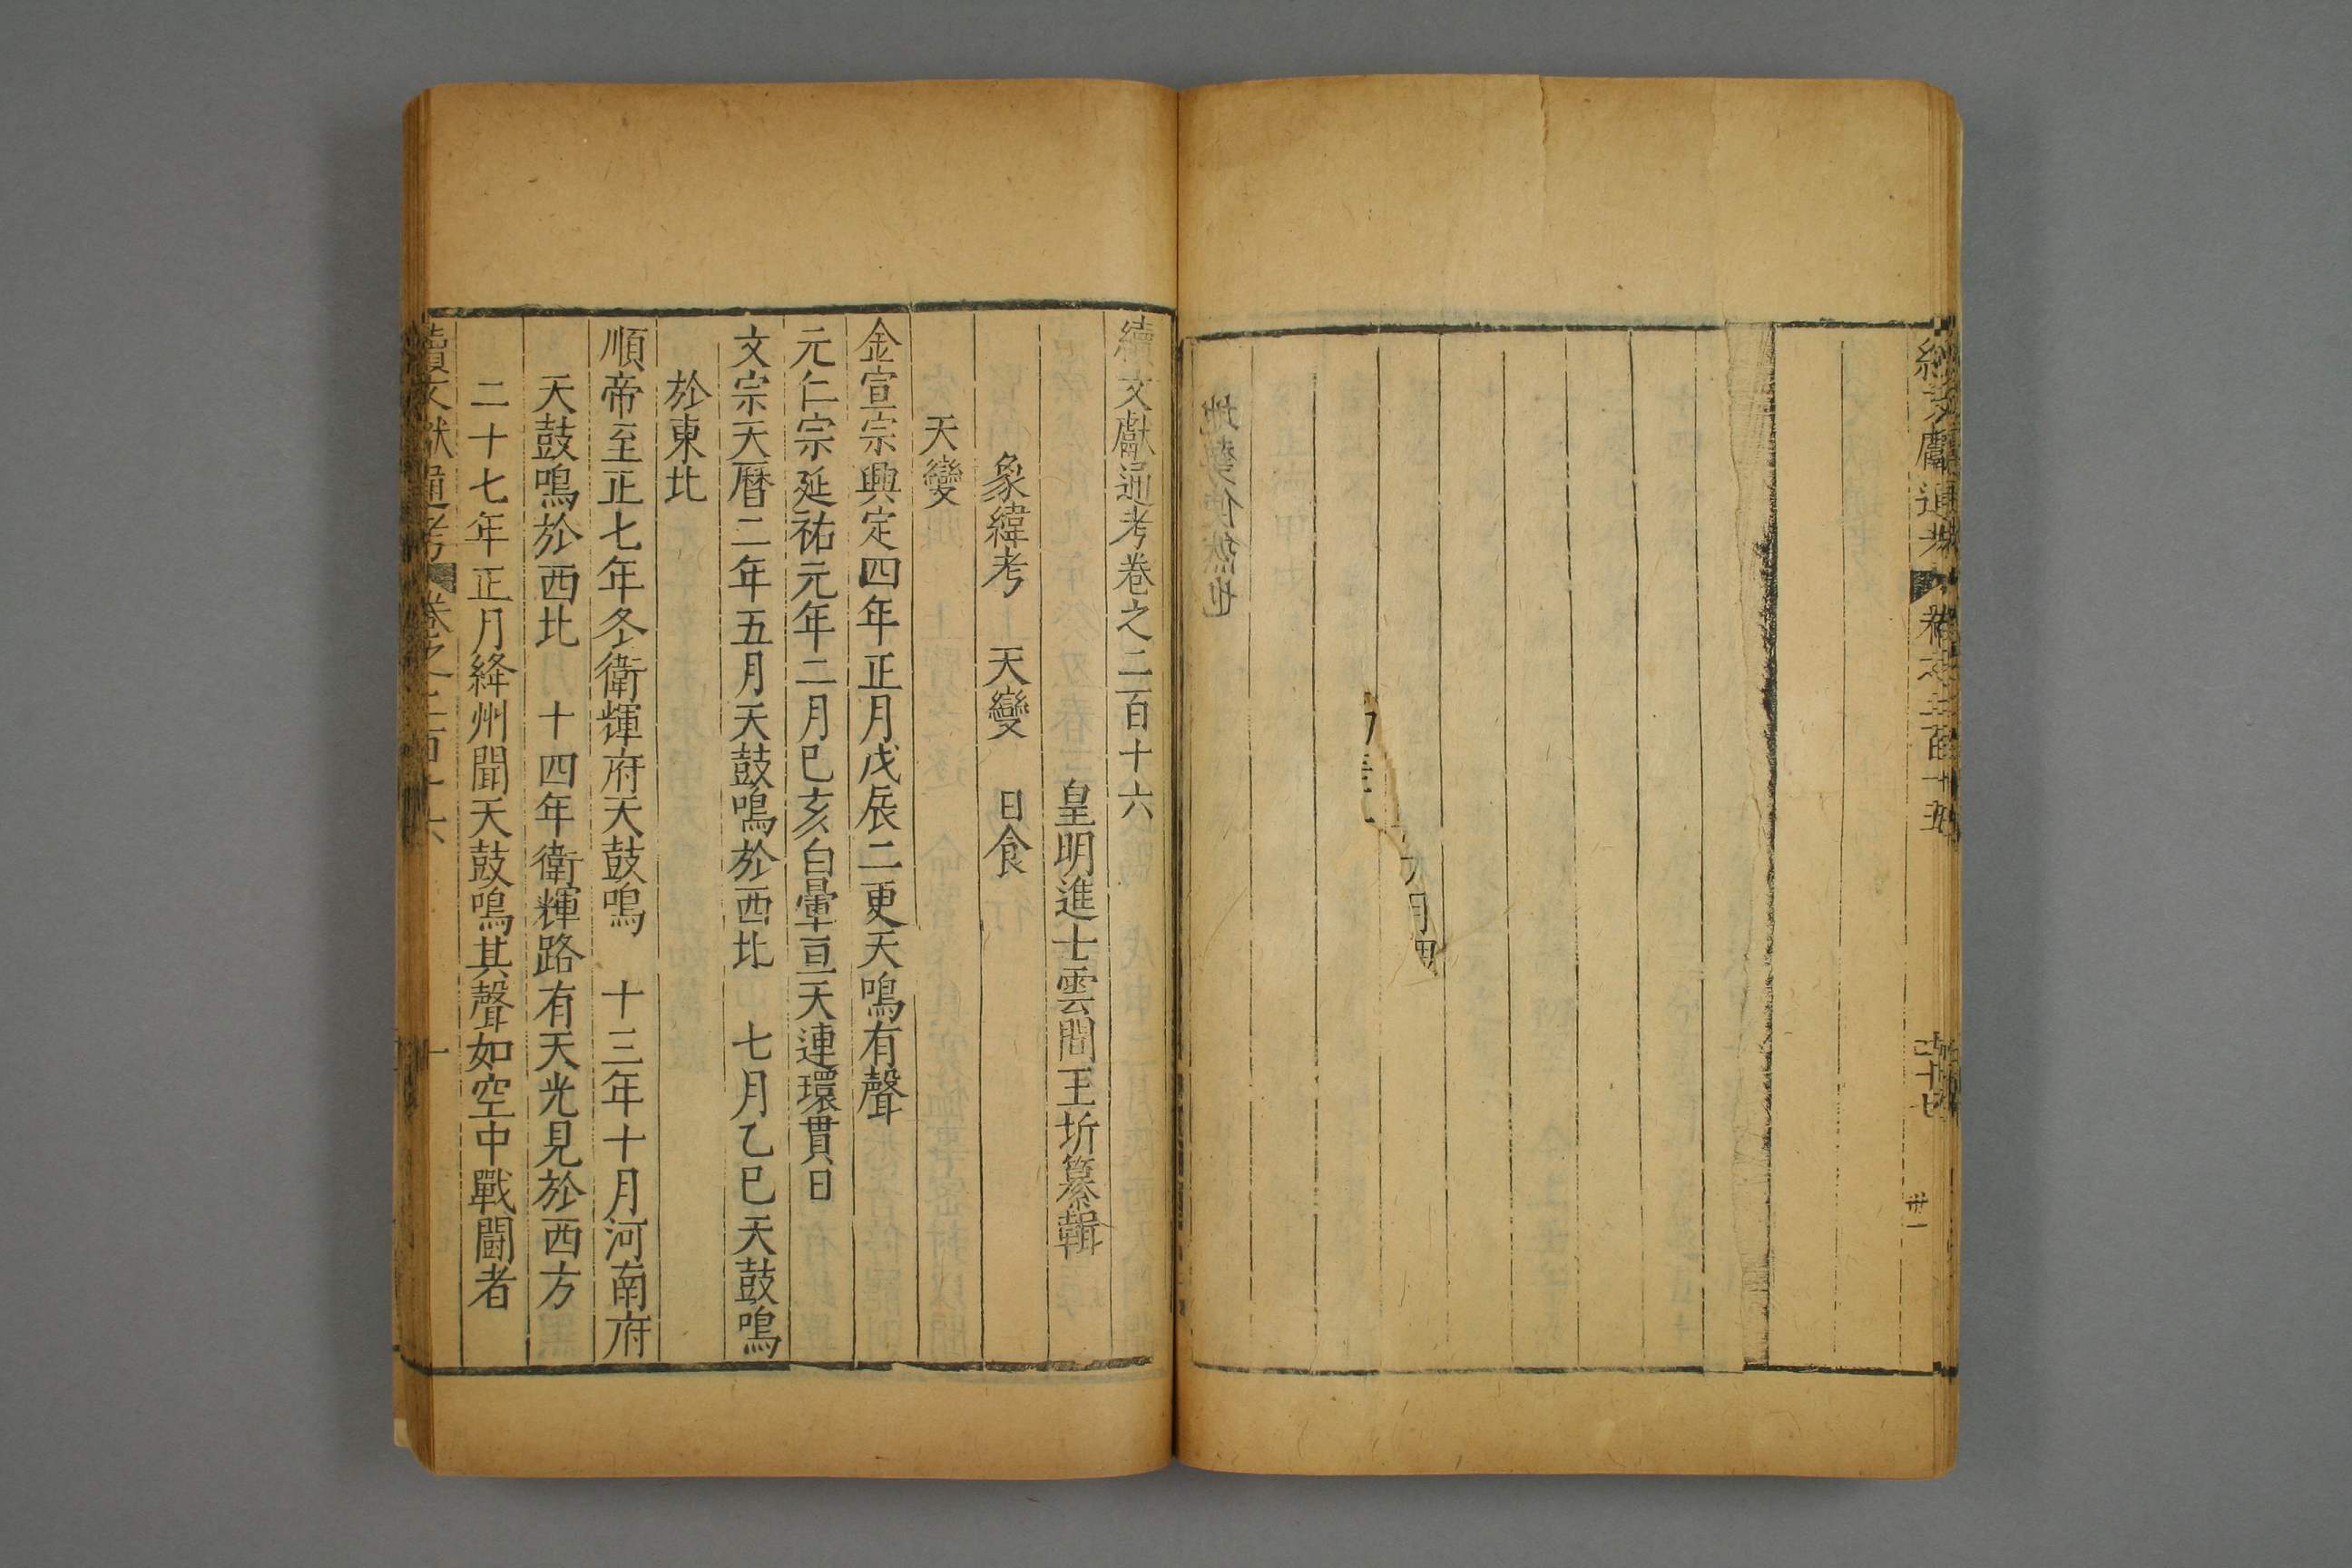 續文獻通考 卷之二百十五 二十七
六月
續文獻通考卷之二百十六
皇明進士雲間王圻纂輯
象緯考 天變 日食
天變
金宣宗興定四年正月戊辰二更天鳴有聲
元仁宗延祐元年二月巳亥白暈亘天連環貫日
文宗天曆二年五月天鼓鳴於西北 七月乙巳天鼓鳴
於東北
順帝至正七年冬衛輝府天鼓鳴 十三年十月河南府
天鼓鳴於西北 十四年衛輝路有天光見於西方
二十七年正月絳州聞天鼓鳴其聲如空中戰鬪者
續文獻通考 卷之二百十六 一